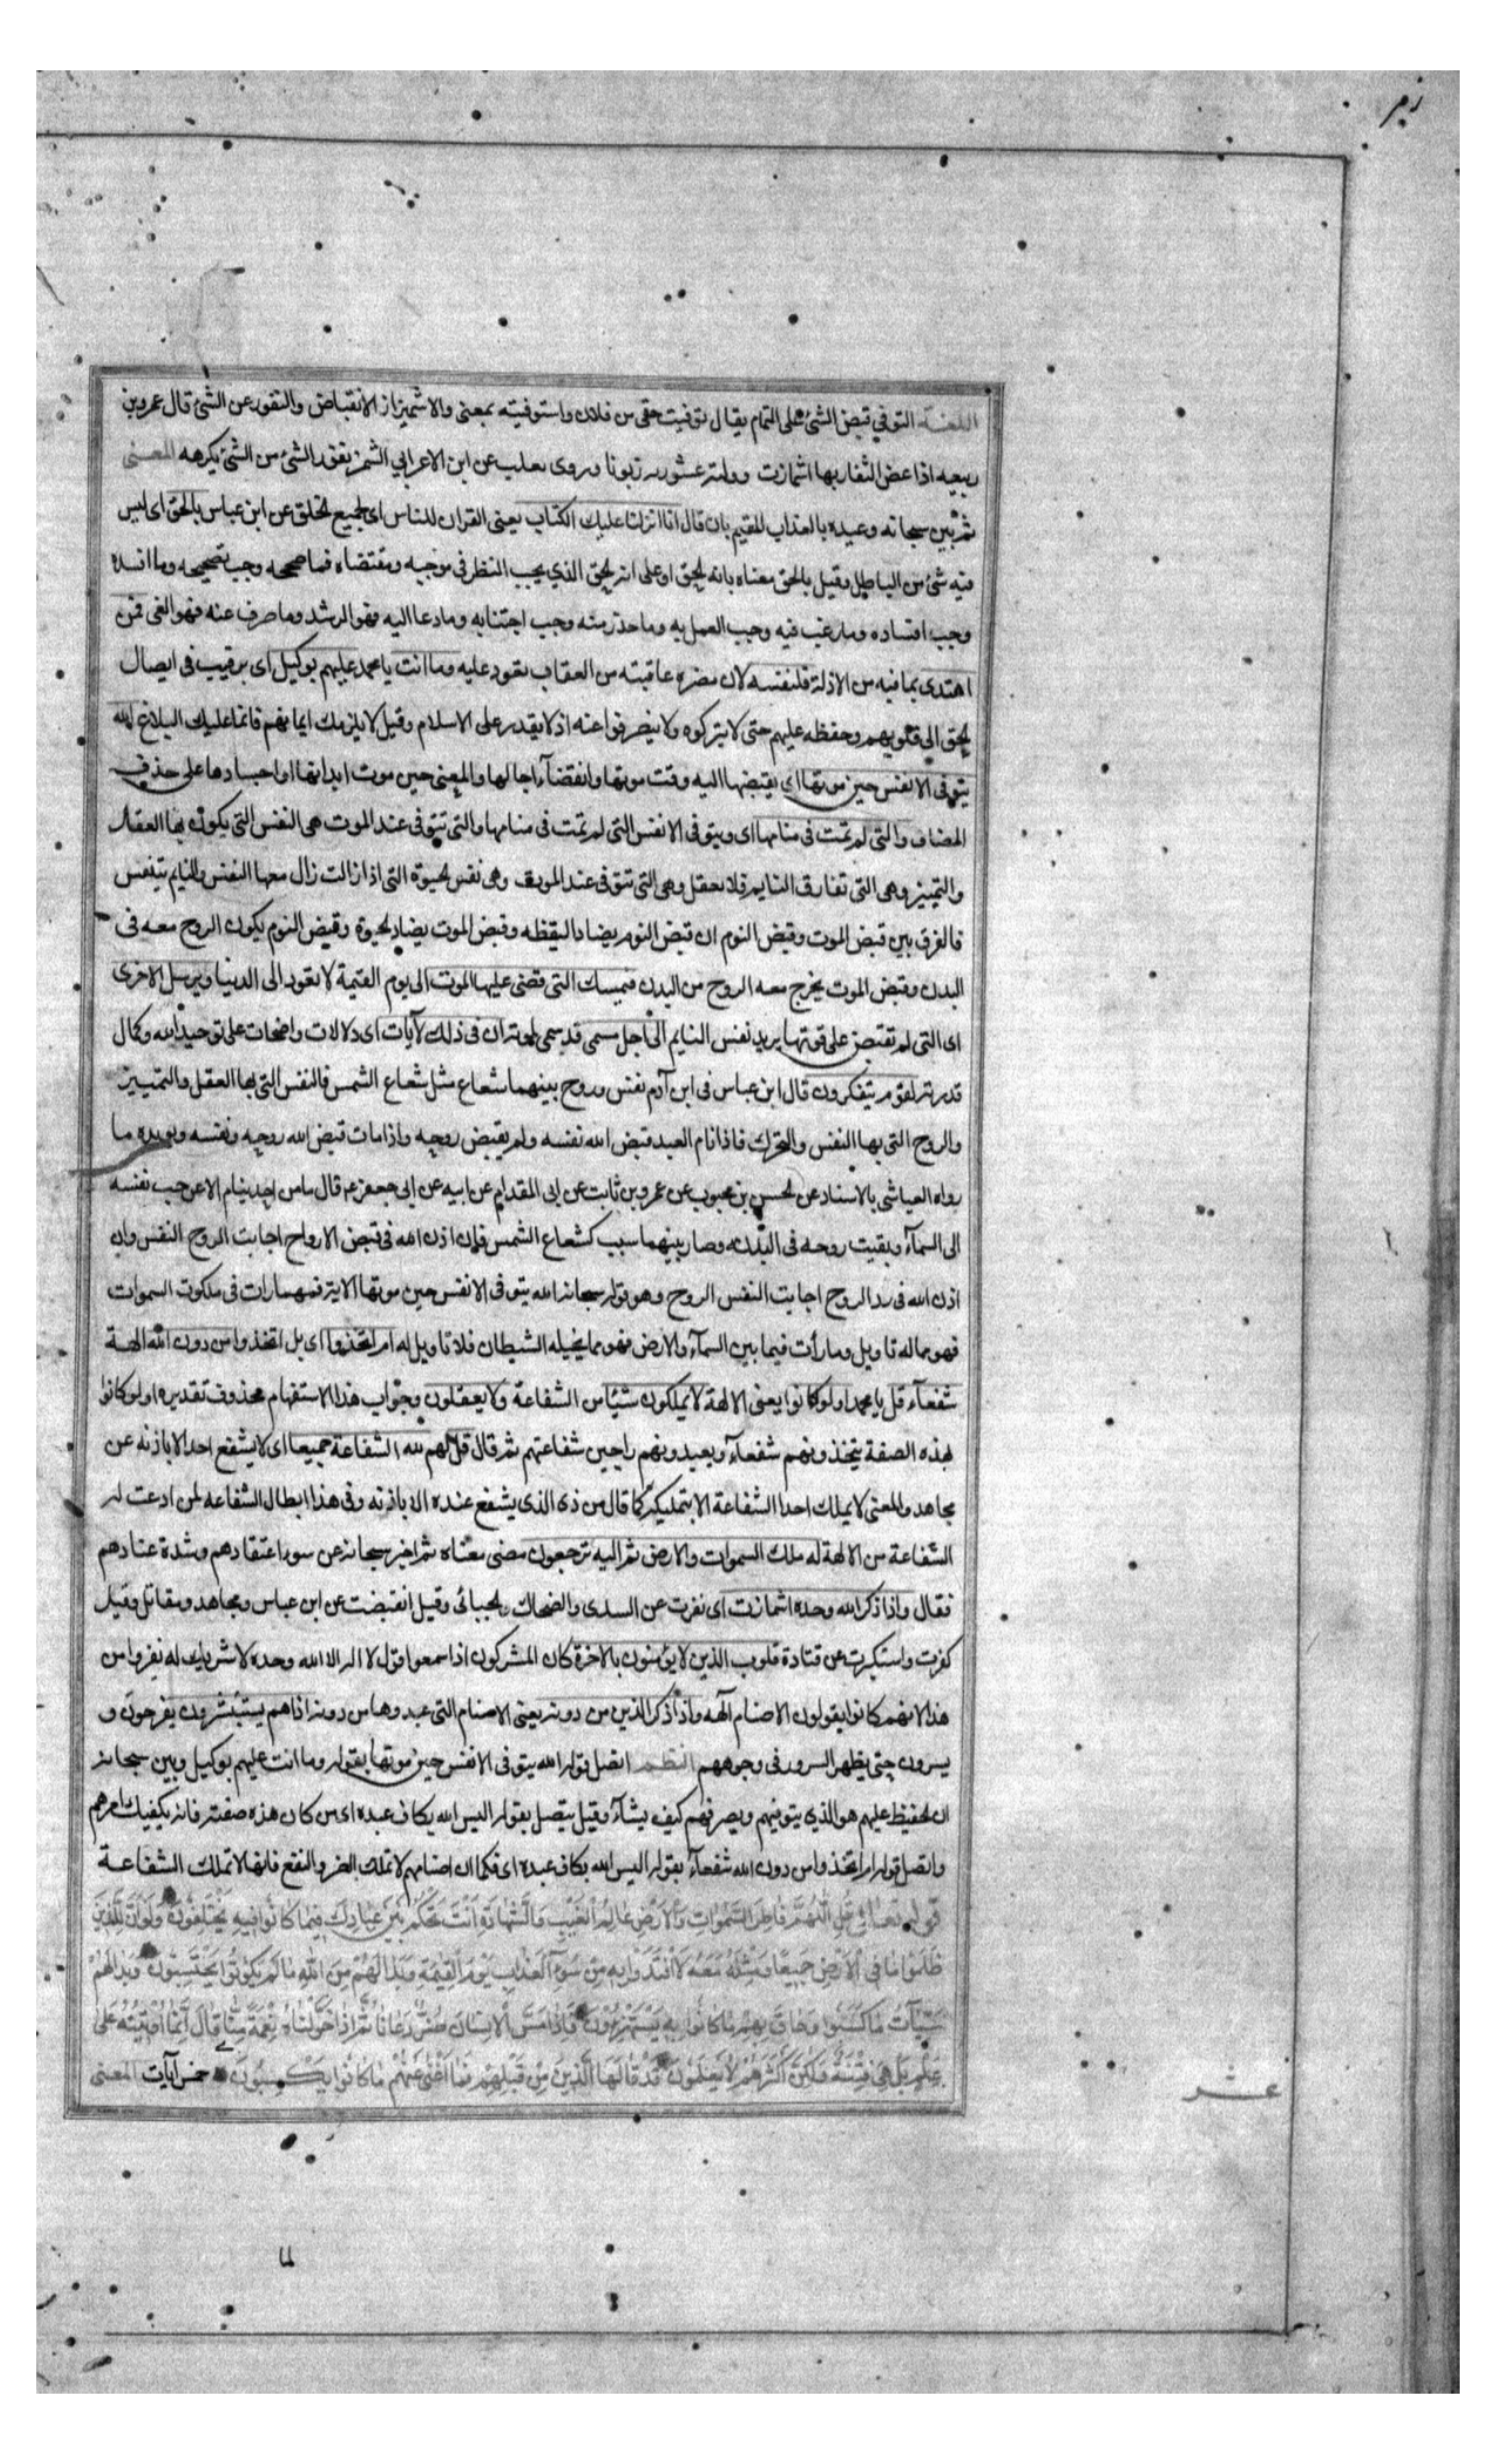 زمر
اللغة التوفي قبض الشئ على التمام يقال توفيت حقي من فلان واستوفيته بمعنى والاشمئزاز الانقباض والنفور عن الشئ قال عمرو بن
ربيعه اذا عض الثقاف بها اشمازت وولته عشوزنه زبونا وروى ثعلب عن ابن الاعرابي الشمز نفور الشئ من الشئ يكرهه المعنى
ثم بين سبحانه وعيده بالعذاب المقيم بان قال انا انزلنا عليك الكتاب يعنى القران للناس اى لجميع الخلق عن ابن عباس بالحق اى ليس
فيه شئ من الباطل وقيل بالحق معناه بانه الحق او على انه الحق الذي يجب النظر فى موجبه ومقتضاه فما صححه وجب تصحيحه وما افسده
وجب افساده وما رغب فيه وجب العمل به وما حذر منه وجب اجتنابه وما دعا اليه فهو الرشد وما صرف عنه فهو الغى فمن
اهتدى بما فيه من الادلة فلنفسه لان مضره عاقبته من العقاب تعود عليه وما انت يا محمد عليهم بوكيل اى برقيب فى ايصال
الحق الى قلوبهم وحفظه عليهم حتى لا يتركوه ولا ينصرفوا عنه اذ لا يقدر على الاسلام وقيل لا يلزمك ايمانهم فانما عليك البلاغ الله
يتوفى الانفس حين موتها اى يقبضها اليه وقت موتها وانقضآء اجالها والمعنى حين موت ابدانها او اجسادها على حذف
المضاف والتى لم تمت فى منامها اى ويتوفى الانفس التى لم تمت فى منامها والتى تتوفى عند الموت هى النفس التى يكون بها العقل
والتمييز وهى التى تفارق النايم فلا يعقل وهى التى تتوفى عند الموت وهى نفس الحيوة التى اذا زالت زال معها النفس والنايم يتنفس
فالفرق بين قبض الموت وقبض النوم ان قبض النوم يضاد اليقظه وقبض الموت يضاد الحيوة وقبض النوم يكون الروح معه فى
البدن وقبض الموت يخرج معه الروح من البدن فيمسك التى قضى عليها الموت الى يوم القيمة لا تعود الى الدنيا ويرسل الاخرى
اى التى لم تقبض على قوتها يريد نفس النايم الى اجل مسمى قد سمى لموته ان فى ذلك لآيات اى دلالات واضحات على توحيد الله وكمال
قدرته لقوم يتفكرون قال ابن عباس فى ابن آدم نفس وروح بينهما شعاع مثل شعاع الشمس فالنفس التى بها العقل والتمييز
والروح التى بها النفس والتحرك فاذا نام العبد قبض الله نفسه ولم يقبض روحه واذا مات قبض الله روحه ونفسه ويويده ما
رواه العياشى بالاسناد عن الحسن بن محبوب عن عمرو بن ثابت عن ابى المقدام عن ابيه عن ابى جعفر ع قال ما من احد ينام الا عرجت نفسه
الى السمآء وبقيت روحه فى البدن وصار بينهما سبب كشعاع الشمس فان اذن الله فى قبض الارواح اجابت الروح النفس وان
اذن الله فى رد الروح اجابت النفس الروح وهو قوله سبحانه الله يتوفى الانفس حين موتها الاية فمهما رات فى ملكوت السموات
فهو مما له تاويل وما رأت فيما بين السمآء والارض فهو مما يخيله الشيطان فلا تاويل له ام اتخذوا اى بل اتخذوا من دون الله الهة
شفعآء قل يا محمد اولو كانوا يعنى الالهة لا يملكون شيئا من الشفاعة ولا يعقلون وجواب هذا الاستفهام محذوف تقديره اولو كانوا
بهذه الصفة يتخذونهم شفعآء ويعبدونهم راجين شفاعتهم ثم قال قل لهم لله الشفاعة جميعا اى لا يشفع احد الا باذنه عن
مجاهد والمعنى لا يملك احد الشفاعة الا بتمليكه كما قال من ذى الذى يشفع عنده الا باذنه وفى هذا ابطال الشفاعه لمن ادعت له
الشفاعة من الالهة له ملك السموات والارض ثم اليه ترجعون مضى معناه ثم اخبر سبحانه عن سوء اعتقادهم وشدة عنادهم
فقال واذا ذكر الله وحده اشمازت اى نفرت عن السدى والضحاك والجبائى وقيل انقبضت عن ابن عباس ومجاهد ومقاتل وقيل
كفرت واستكبرت عن قتادة قلوب الذين لا يؤمنون بالاخرة كان المشركون اذا سمعوا قول لا اله الا الله وحده لا شريك له نفروا من
هذا لانهم كانوا يقولون الاصنام آلهه واذا ذكر الذين من دونه يعنى الاصنام التى عبدوها من دونه اذا هم يستبشرون يفرحون و
يسرون حتى يظهر السرور فى وجوههم النظم اتصل قوله الله يتوفى الانفس حين موتها بقوله وما انت عليهم بوكيل وبين سبحانه
ان الحفيظ عليهم هو الذي يتوفيهم ويصرفهم كيف يشآء وقيل يتصل بقوله اليس الله بكاف عبده اى من كان هذه صفته فانه يكفيك امرهم
واتصل قوله ام اتخذوا من دون الله شفعآء بقوله اليس الله بكاف عبده اى فكما ان اصنامهم لا تملك الضر والنفع فانها لا تملك الشفاعة
قوله تعالى قُلِ اللّٰهُمَّ فَاطِرَ السَّمٰوَاتِ وَالْاَرْضِ عَالِمَ الْغَيْبِ وَالشَّهَادَةِ اَنْتَ تَحْكُمُ بَيْنَ عِبَادِكَ فِيمَا كَانُوا فِيهِ يَخْتَلِفُونَ وَلَوْ اَنَّ لِلَّذِينَ
ظَلَمُوا مَا فِي الْاَرْضِ جَمِيعًا وَمِثْلَهُ مَعَهُ لَافْتَدَوْا بِهِ مِنْ سُوءِ الْعَذَابِ يَوْمَ الْقِيٰمَةِ وَبَدَا لَهُمْ مِنَ اللّٰهِ مَا لَمْ يَكُونُوا يَحْتَسِبُونَ وَبَدَا لَهُمْ
سَيِّئَآتُ مَا كَسَبُوا وَحَاقَ بِهِمْ مَا كَانُوا بِهِ يَسْتَهْزِؤُنَ فَاِذَا مَسَّ الْاِنْسَانَ ضُرٌّ دَعَانَا ثُمَّ اِذَا خَوَّلْنَاهُ نِعْمَةً مِنَّا قَالَ اِنَّمَا اُوتِيتُهُ عَلٰى
عِلْمٍ بَلْ هِيَ فِتْنَةٌ وَلٰكِنَّ اَكْثَرَهُمْ لَا يَعْلَمُونَ قَدْ قَالَهَا الَّذِينَ مِنْ قَبْلِهِمْ فَمَا اَغْنٰى عَنْهُمْ مَا كَانُوا يَكْسِبُونَ خمس آيات المعنى
عشر
لما